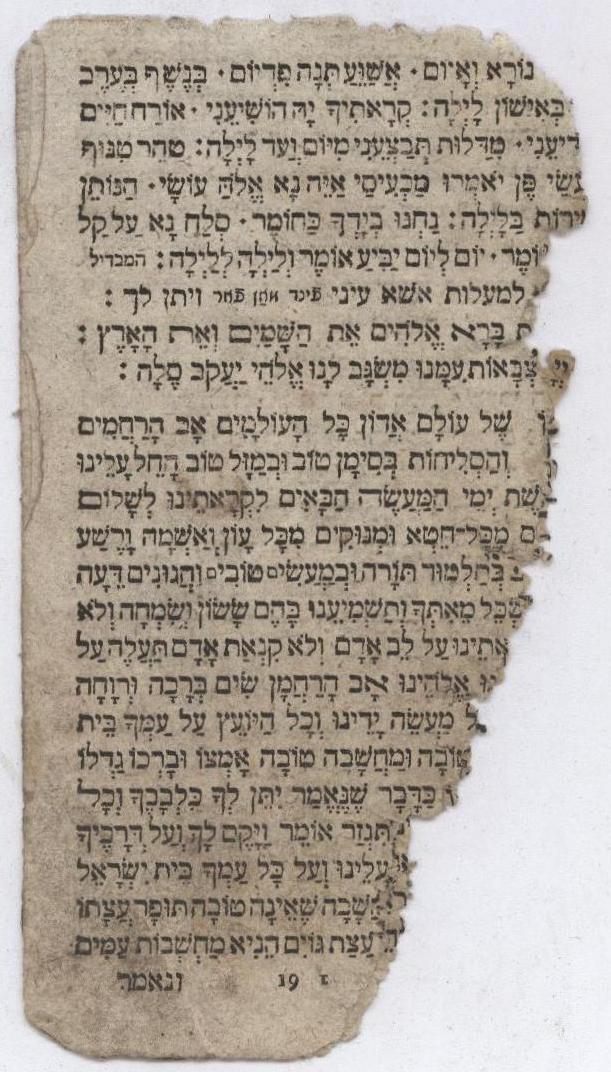 נוֹרָא וְאָיוֹם · אֲשַׁוֵּעַ תְּנָה פִדְיוֹם · בְּנֶשֶׁף בְּעֶרֶב
בְּאִישׁוֹן לָיְלָה : קְרָאתִיךָ יָהּ הוֹשִׁיעֵנִי · אוֹרַח חַיִּים
דִיעֵנִי · מִדַּלּוּת תְּבַצְּעֵנִי מִיּוֹם וְעַד לָיְלָה : טַהֵר טִנּוּף
עֲשַׂי פֶּן יֹאמְרוּ מַכְעִיסַי אַיֵּה נָא אֱלֹהַּ עוֹשָׂי · הַנּוֹתֵן
ירוֹת בַּלָּיְלָה : נַחְנוּ בְיָדְךָ כַּחוֹמֶר · סְלַח נָא עַל קַל
וֹמֶר · יוֹם לְיוֹם יַבִּיעַ אוֹמֶר וְלַיְלָה לְלַיְלָה : המבדיל
למעלות אשא עיני ויתן לך :
ת בָּרָא אֱלֹהִים אֵת הַשָּׁמַיִם וְאֵת הָאָרֶץ :
צְבָאוֹת עִמָּנוּ מִשְׂגָּב לָנוּ אֱלֹהֵי יַעֲקֹב סֶלָה :
שֶׁל עוֹלָם אֲדוֹן כָּל הָעוֹלָמִים אָב הָרַחֲמִים
וְהַסְּלִיחוֹת בְּסִימָן טוֹב וּבְמַזָּל טוֹב הָחֵל עָלֵינוּ
שֶׁת יְמֵי הַמַּעֲשֶׂה הַבָּאִים לִקְרָאתֵינוּ לְשָׁלוֹם
ם מִכָּל־חֵטְא וּמְנוּקִים מִכָּל עָוֹן וְאַשְׁמָה וָרֶשַׁע
בְּתַלְמוּד תּוֹרָה וּבְמַעֲשִׂים טוֹבִים וְחָנּוֹנֵים דֵּעָה
שְׂכֵל מֵאִתְּךָ וְתַשְׁמִיעֵנוּ בָּהֶם שָׂשׂוֹן וְשִׂמְחָה וְלֹא
אָתֵינוּ עַל לֵב אָדָם וְלֹא קִנְאַת אָדָם תַּעֲלֶה עַל
אֱלֹהֵינוּ אָב הָרַחֲמָן שִׂים בְּרָכָה וְרָוָחָה
ל מַעֲשֵׂה יָדֵינוּ וְכָל הַיּוֹעֵץ עַל עַמְּךָ בֵּית
טוֹבָה וּמַחֲשָׁבָה טוֹבָה אָמְצוֹ וּבָרְכוֹ גַדְּלוֹ
כַּדָּבָר שֶׁנֶּאֱמַר יִתֶּן לְךָ כִלְבָבֶךָ וְכָל
תִגְזַר אוֹמֶר וְיָקָם לָךְ וְעַל דְּרָכֶיךָ
עָלֵינוּ וְעַל כָּל עַמְּךָ בֵּית יִשְׂרָאֵל
שָׁבָה שֶׁאֵינָה טוֹבָה תּוּפַר עֲצָתוֹ
עֲצַת גּוֹיִם הֵנִיא מַחְשְׁבוֹת עַמִּים
19 ונאמר